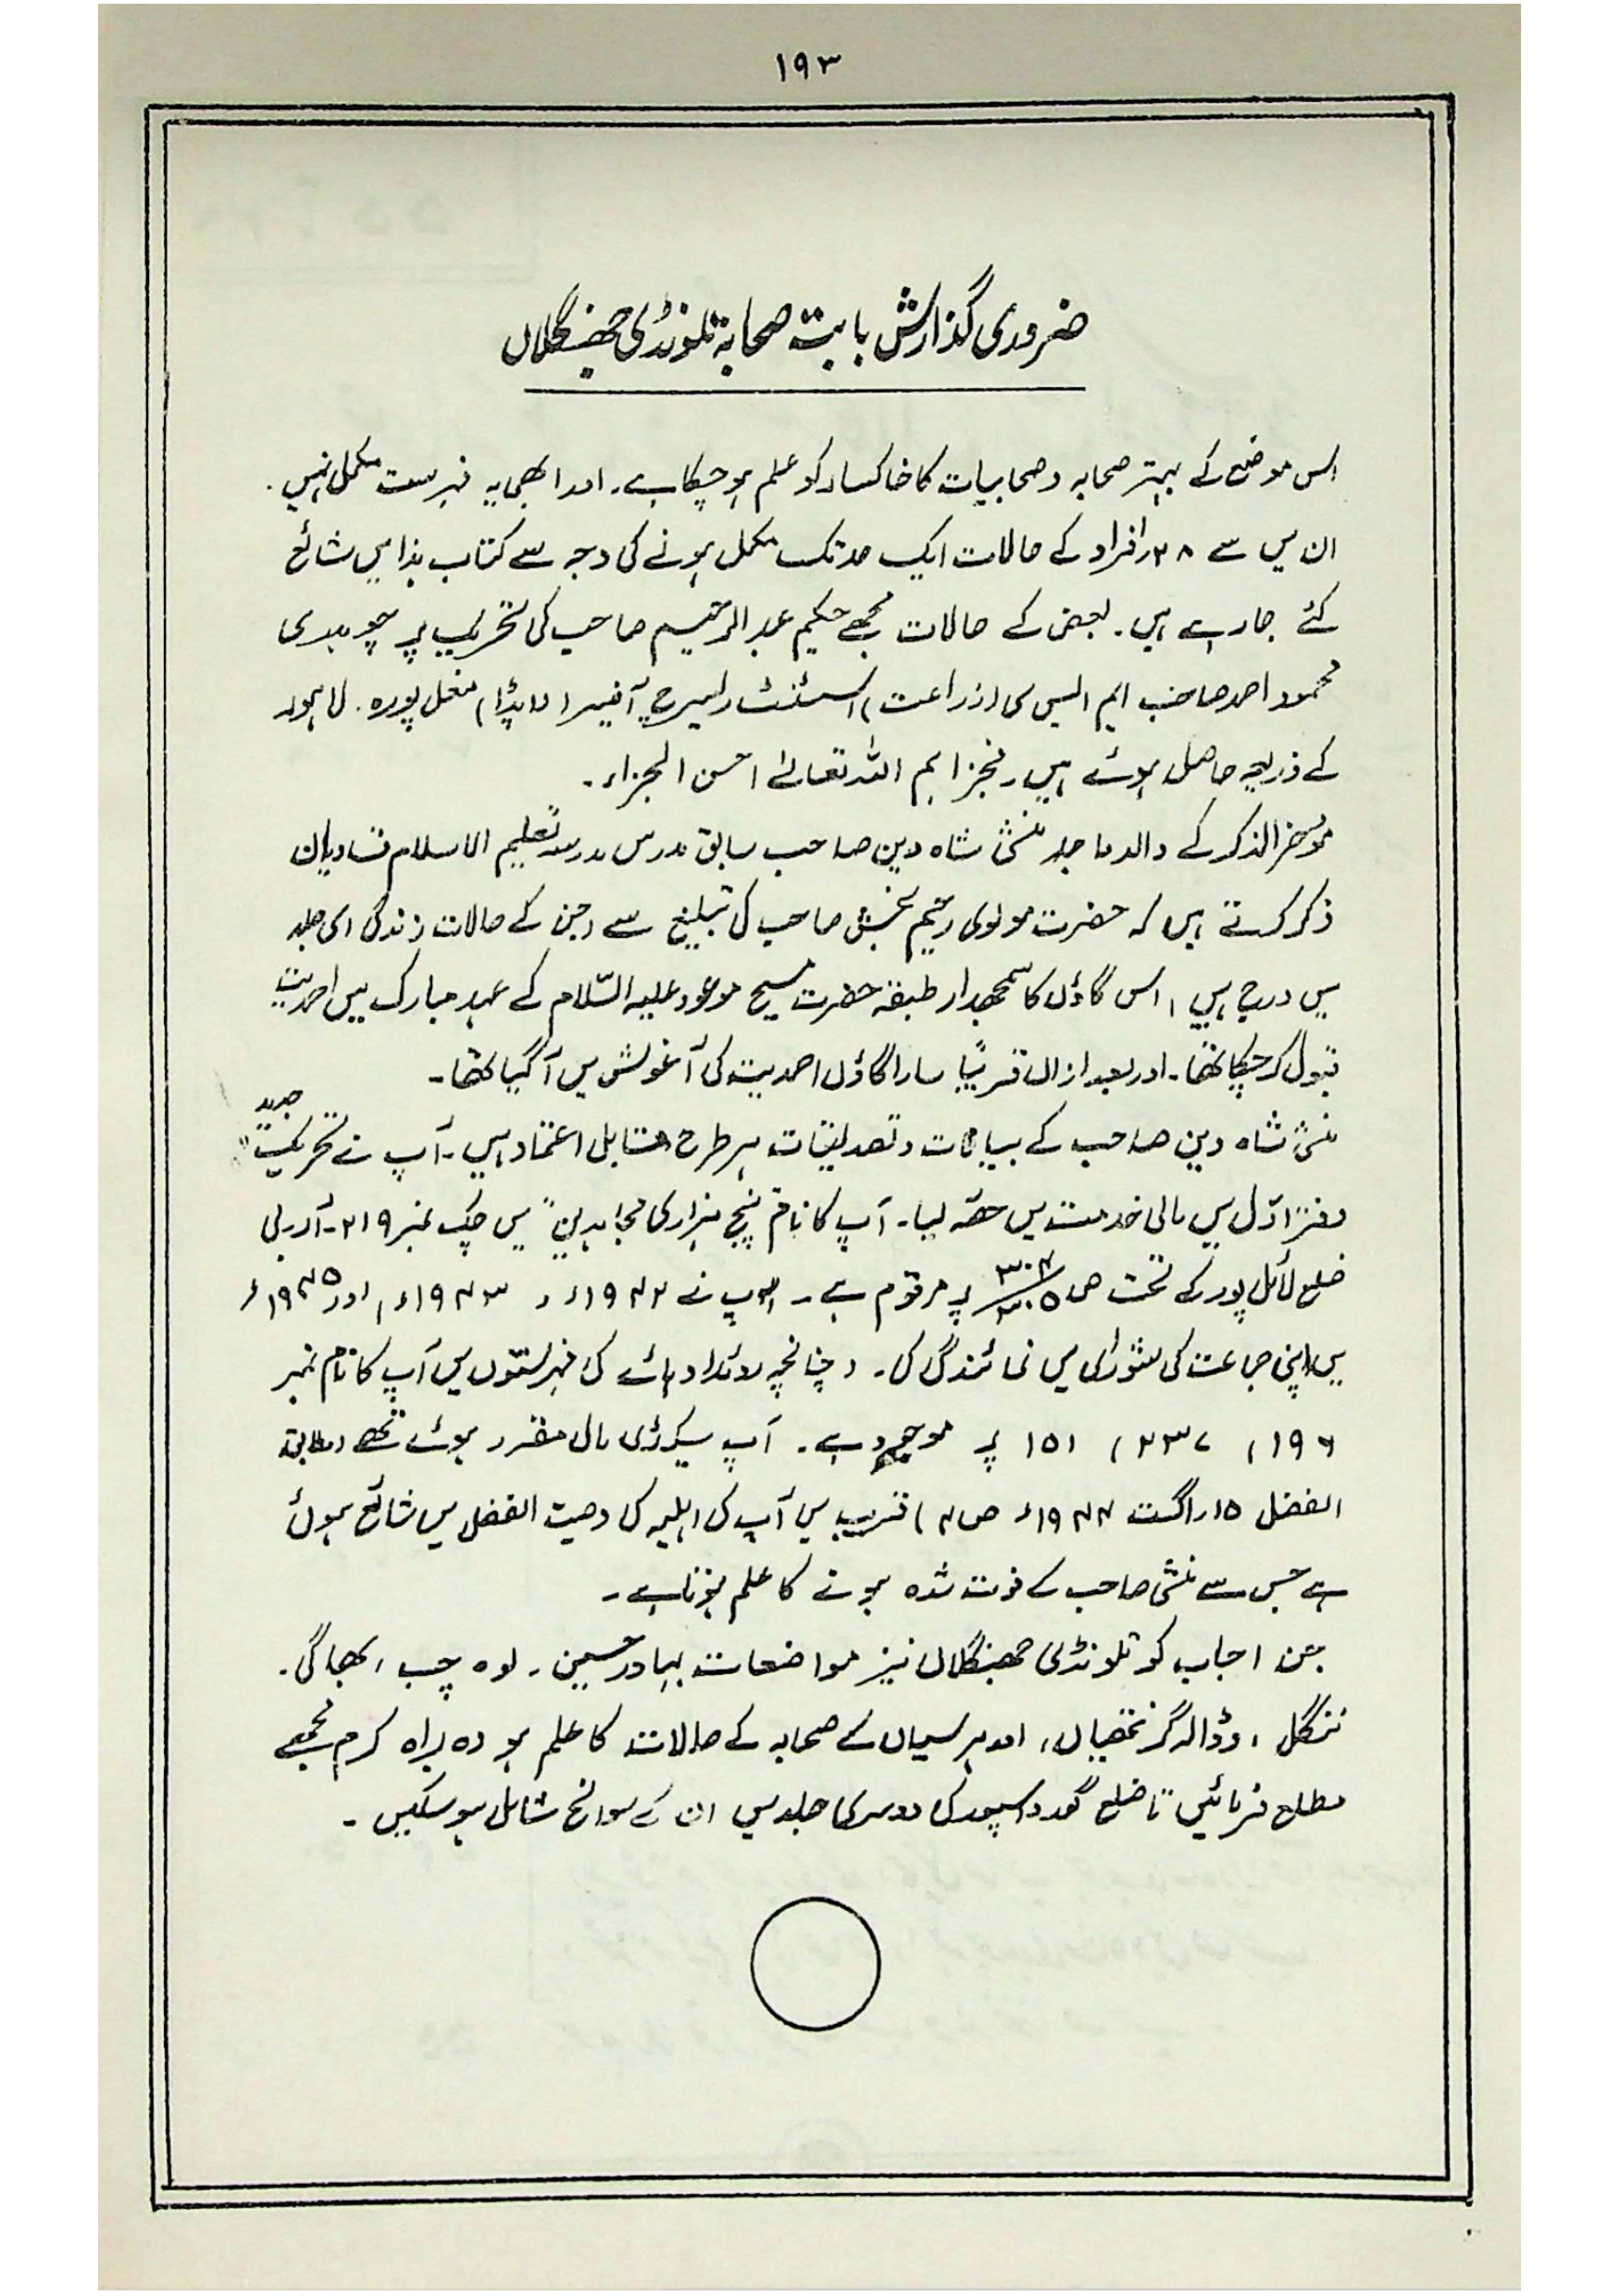 ۱۹۳
ضروری گذارش بابت صحابہ تلونڈی جھنگلاں
اس موضع کے بہتر صحابہ و صحابیات کا خاکسار کو علم ہو چکا ہے۔ اور ابھی یہ فہرست مکمل نہیں۔
ان میں سے ۲۸ افراد کے حالات ایک حد تک مکمل ہونے کی وجہ سے کتاب ہذا میں شائع
کئے جا رہے ہیں۔ بعض کے حالات مجھے حکیم عبدالرحیم صاحب کی تحریک پر چوہدری
محمود احمد صاحب ایم ایس سی (زراعت) اسسٹنٹ ریسرچ آفیسر (واپڈا) مغل پورہ۔ لاہور
کے ذریعہ حاصل ہوئے ہیں۔ فجزاہم اللہ تعالےٰ احسن الجزاء۔
مؤخر الذکر کے والد ماجد منشی شاہ دین صاحب سابق مدرس مدرسہ تعلیم الاسلام قادیان
ذکر کرتے ہیں کہ حضرت مولوی رحیم بخش صاحب کی تبلیغ سے (جن کے حالات زندگی اسی جلد
میں درج ہیں) اس گاؤں کا سمجھدار طبقہ حضرت مسیح موعود علیہ السّلام کے عہد مبارک میں احمدیت
قبول کر چکا تھا۔ اور بعد ازاں قریباً سارا گاؤں احمدیت کی آغوش میں آ گیا تھا۔
منشی شاہ دین صاحب کے بیانات و تصدیقات ہر طرح قابل اعتماد ہیں۔ آپ نے تحریک جدید
دفتر اوّل میں مالی خدمت میں حصّہ لیا۔ آپ کا نام "پنج ہزاری مجاہدین" میں چک نمبر ۲۱۹۔ آر بی
ضلع لائل پور کے تحت ص ۳۰۴/۳۰۵ پر مرقوم ہے۔ آپ نے ۱۹۴۲ء، ۱۹۴۳ء، اور ۱۹۴۵ء
میں اپنی جماعت کی شوریٰ میں نمائندگی کی۔ چنانچہ روئداد ہائے کی فہرستوں میں آپ کا نام نمبر
۱۹۶، ۲۳۷، ۱۵۱ پر موجود ہے۔ آپ سیکرٹری مال مقرر ہوئے تھے (مطابق
الفضل ۱۵ اگست ۱۹۴۴ء ص ۴) قریب میں آپ کی اہلیہ کی وصیت الفضل میں شائع ہوئی
ہے جس سے منشی صاحب کے فوت شدہ ہونے کا علم ہوتا ہے۔
جن احباب کو تلونڈی جھنگلاں نیز مواضعات بہادر حسین۔ لوہ چپ، بھاگی۔
ننگل، وڈالہ گرنتھیاں، اور ہرسیاں کے صحابہ کے حالات کا علم ہو وہ براہ کرم مجھے
مطلع فرمائیں تا ضلع گورداسپور کی دوسری جلد میں ان کے سوانح شامل ہو سکیں۔